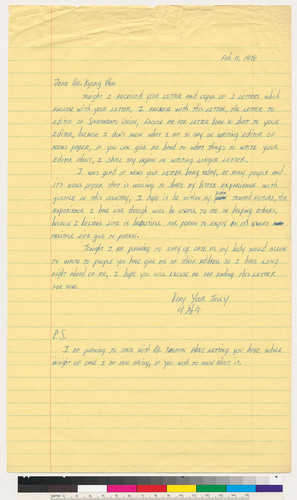 Feb. 9, 1978
Dear Mr. Kyung Won
Tonight I received your letter and copies of 2 letters which
enclose with your letter, I enclose with this letter, the letter to
editor of Sacramento Union, excuse me for letter been so short to your
editor, because I don't know what I am to say in writing editor of
news paper, if you can give me hand to what things to write your
editor about, I shall try again in writing longer letter.
I was glad of news your letter being today, of many people and
it's news paper that is willing to share my bitter experience with
justice in this country, I hope it be within my toward future, the
experience I have live though will be useful to me in helping others,
because I believe life is beautiful for person to enjoy in its sweet
fruitful life give to person.
Tonight I am planning to stay up late as my body would allow
to write to people you have give me of their address so I have long
night ahead of me, I hope you will excuse me for ending this letter
for now.
Very Your Truly
이철수
P.S.
I am planning to speak with Mr. about letting you have whole
insight of case I am now facing, if you wish to know about it.